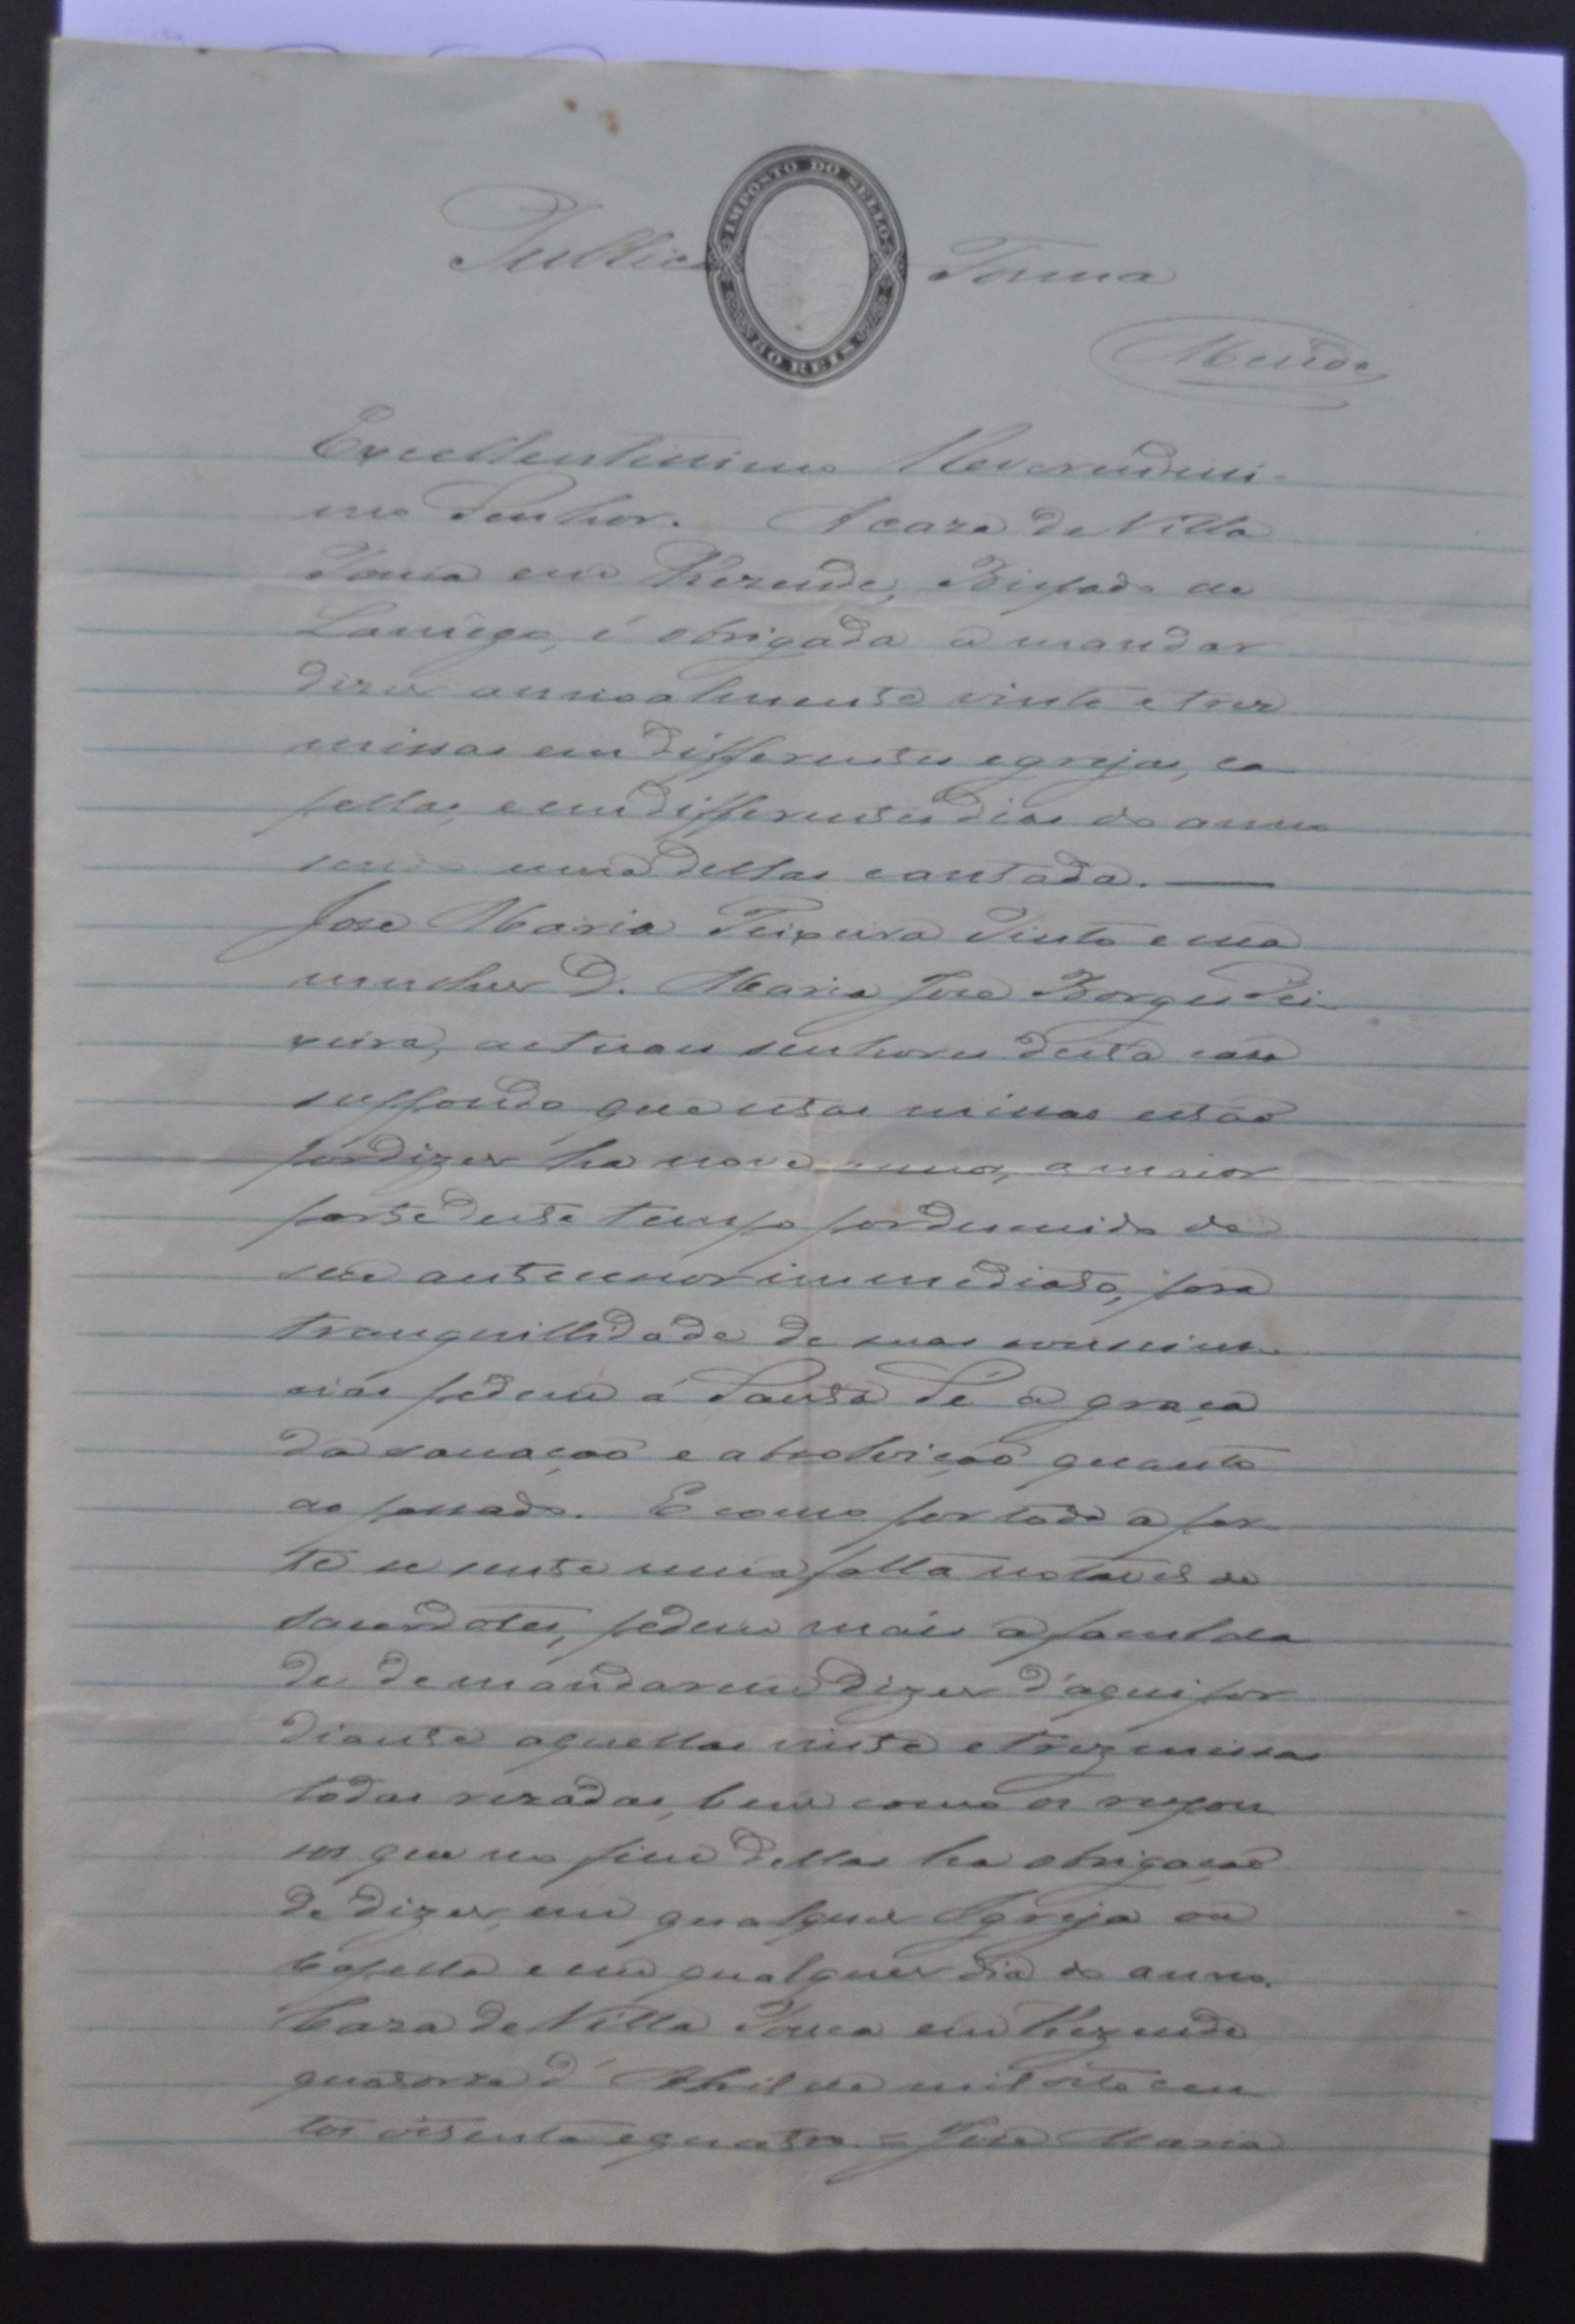 Publica Forma
IMPOSTO DO SELLO
80 REIS
Excellentissimo Reverendissi-
mo Senhor. A caza de Villa
Pouca em Rezende, Bispado de
Lamêgo, é obrigada a mandar
dizer annoalmente vinte e trez
missas em differentes egrejas, ca
pellas, e em differentes dias do anno
sendo uma dellas cantada. —
José Maria Teixeira Pinto e sua
mulher D. Maria José Borges Tei-
xeira, actuaes senhores desta casa
suppondo que estas missas estão
por dizer ha nove annos, a maior
parte deste tempo por descuido de
seu antecessor immediato, para
tranquillidade de suas conscien-
cias pedem á Santa Sé a graça
da sanação e absolvição quanto
ao passado. E como por toda a par-
te se sente uma falta notavel de
sacerdotes, pedem mais a faculda
de de mandarem dizer d'aqui por
diante aquellas vinte e trez missas
todas rezadas, bem como os respon-
sos que no fim dellas ha obrigação
de dizer, em qualquer Igreja ou
Capella e em qualquer dia do anno.
Caza de Villa Pouca em Rezende
quatorze d'Abril de mil oitocen
tos oitenta e quatro. = José Maria